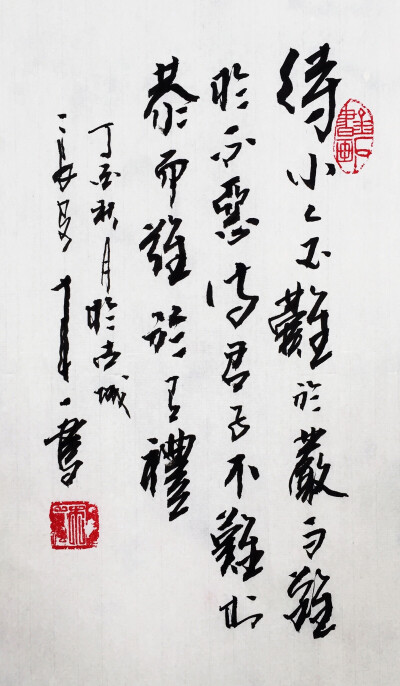 待小人不難於嚴而難
於不惡待君子不難於
恭而難於有禮
丁酉秋月於古城
書